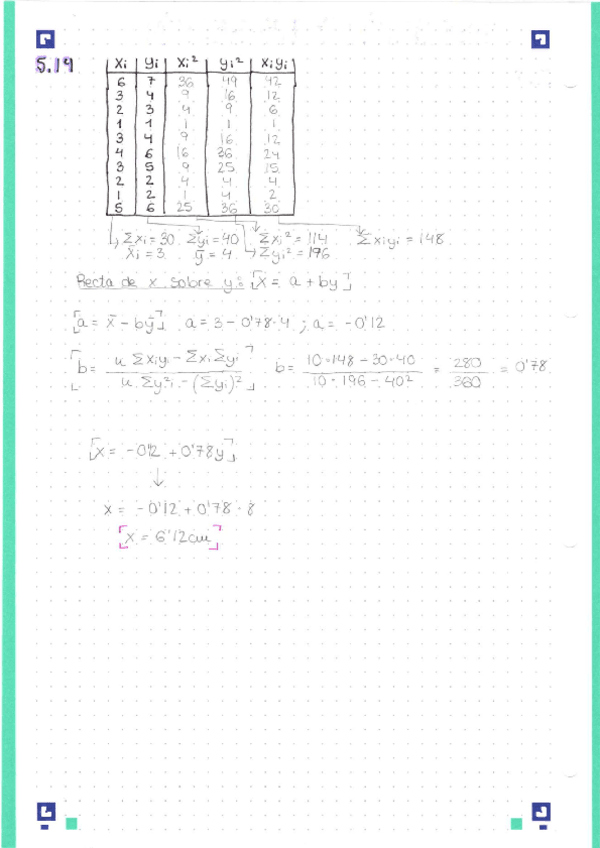 5.19
xi yi xi² yi² xiyi
6 7 36 49 42
3 4 9 16 12
2 3 4 9 6
1 1 1 1 1
3 4 9 16 12
4 6 16 36 24
3 5 9 25 15
2 2 4 4 4
1 2 1 4 2
5 6 25 36 30
Σxi = 30 Σyi = 40 Σxi² = 114 Σxiyi = 148
x̄i = 3 ȳ = 4 Σyi² = 196
Recta de x sobre y: x = a + by
a = x̄ - bȳ a = 3 - 0'78·4 ; a = -0'12
b = (n Σxiyi - Σxi Σyi) / (n·Σy²i - (Σyi)²) b = (10·148 - 30·40) / (10·196 - 40²) = 280 / 360 = 0'78
x = -0'12 + 0'78y
↓
x = -0'12 + 0'78·8
x = 6'12cm